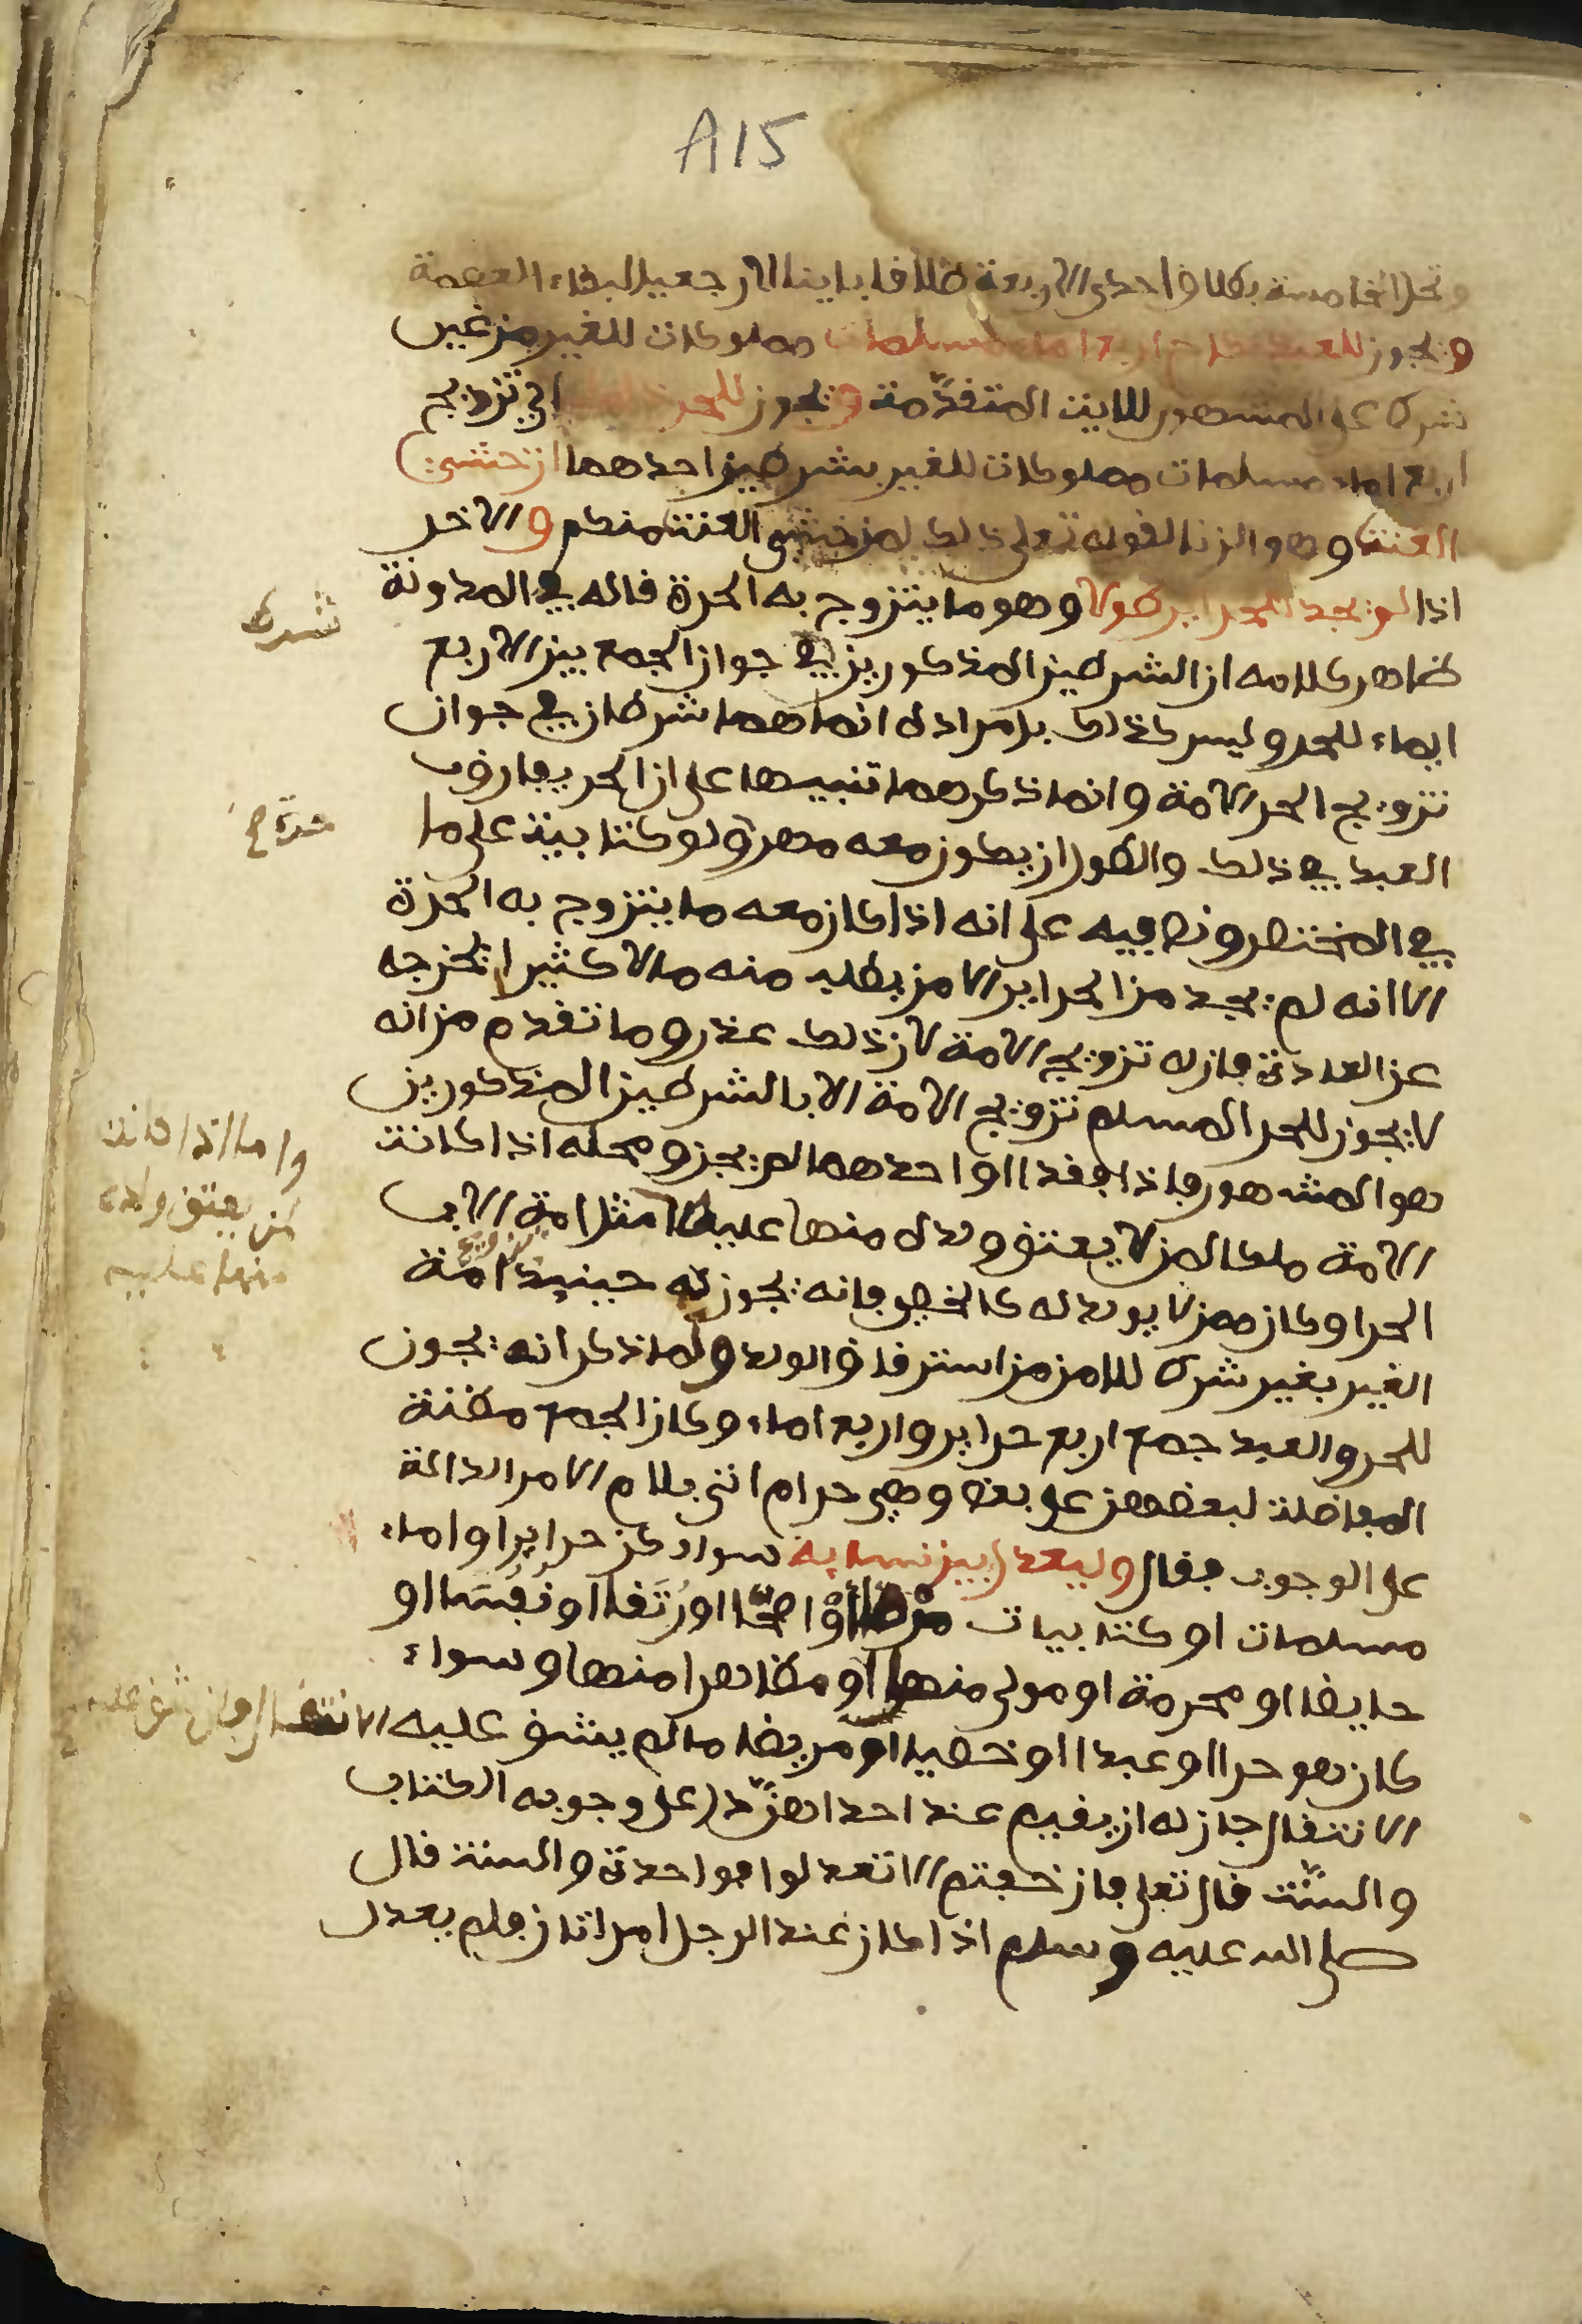 A15
وتحل الخامسة بطلاق احدى الاربعة طلاقا باينا لا رجعيا لبقاء العصمة
ويجوز للعبد نكاح اربع اماء مسلمات مملوكات للغير من غير
شرط على المشهور للاية المتقدّمة ويجوز للحر ذلك اي تزويج
اربع اماء مسلمات مملوكات للغير بشرطين احدهما ان خشي
العنت وهو الزنا لقوله تعلى ذلك لمن خشي العنت منكم والاخر
اذا لم يجد للحراير طولا وهو ما يتزوج به الحرة قاله في المدونة
ظاهر كلامه ان الشرطين المذكورين في جواز الجمع بين الاربع
اماء للحر وليس كذلك بل مراده انما هما شرطان في جواز
تزويج الحر الامة وانما ذكرهما تنبيها على ان الحر يفارق
العبد في ذلك والطول ان يكون معه مهر ولو كتابية على ما
في المختصر ونص فيه على انه اذا كان معه ما يتزوج به الحرة
الا انه لم يجد من الحراير الا من يطلب منه مالا كثيرا يخرجه
عن العادة جاز له تزويج الامة لان ذلك عذر وما تقدم من انه
لا يجوز للحر المسلم تزويج الامة الا بالشرطين المذكورين
هو المشهور فاذا فقدا او احدهما لم يجز ومحله اذا كانت
الامة ملكا لمن لا يعتق ولده منها عليه مثل امة الاب
الحر او كان ممن لا يولد له كالخصي فانه يجوز له حينيذ تزويج امة
الغير بغير شرط للامن من استرقاق الولد ولما ذكر انه يجوز
للحر والعبد جمع اربع حراير واربع اماء وكان الجمع مظنة
المفاضلة لبعضهن على بعض وهي حرام اتى بلام الامر الدالة
على الوجوب فقال وليعدل بين نسايه سواء كن حراير او اماء
مسلمات او كتابيات مرضا او صحا او رتقا او نفسا او
حايضا او محرمة او مولى منها او مظاهرا منها وسواء
كان هو حرا او عبدا او خصيا او مريضا ما لم يشق عليه الانتقال فان شق عليه
الانتقال جاز له ان يقيم عند احداهن دلّ على وجوبه الكتاب
والسنّت قال تعلى فان خفتم الا تعدلوا فواحدة والسنة قال
صلى الله عليه وسلم اذا كان عند الرجل امراتان فلم يعدل
شرط
واما اذا كانت
لمن يعتق ولده
منها عليه